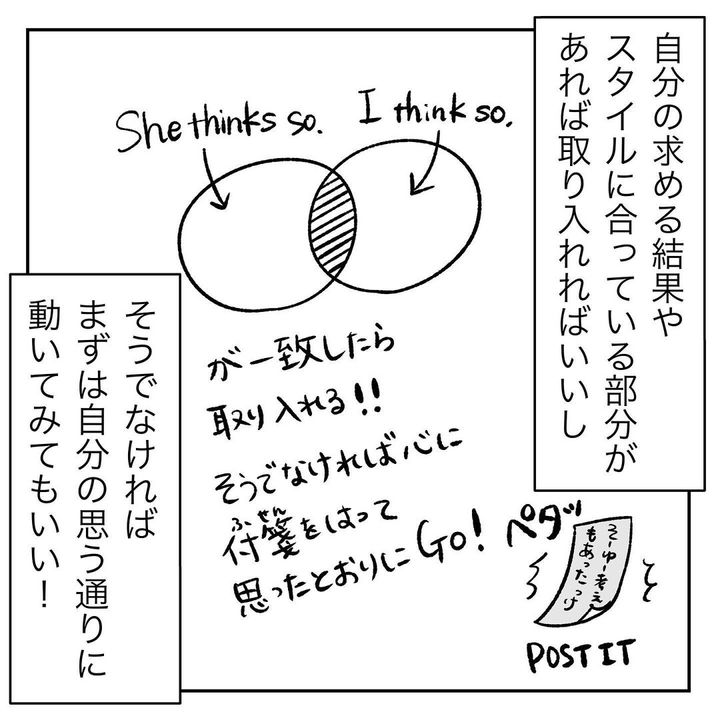 自分の求める結果や
スタイルに合っている部分が
あれば取り入れればいいし
She thinks so.
I think so.
が一致したら
取り入れる!!
そうでなければ心に
付箋をはって
ふせん
思ったとおりにGO!
ペタッ
そーゆー考え
もあったっけ
POST IT
そうでなければ
まずは自分の思う通りに
動いてみてもいい！